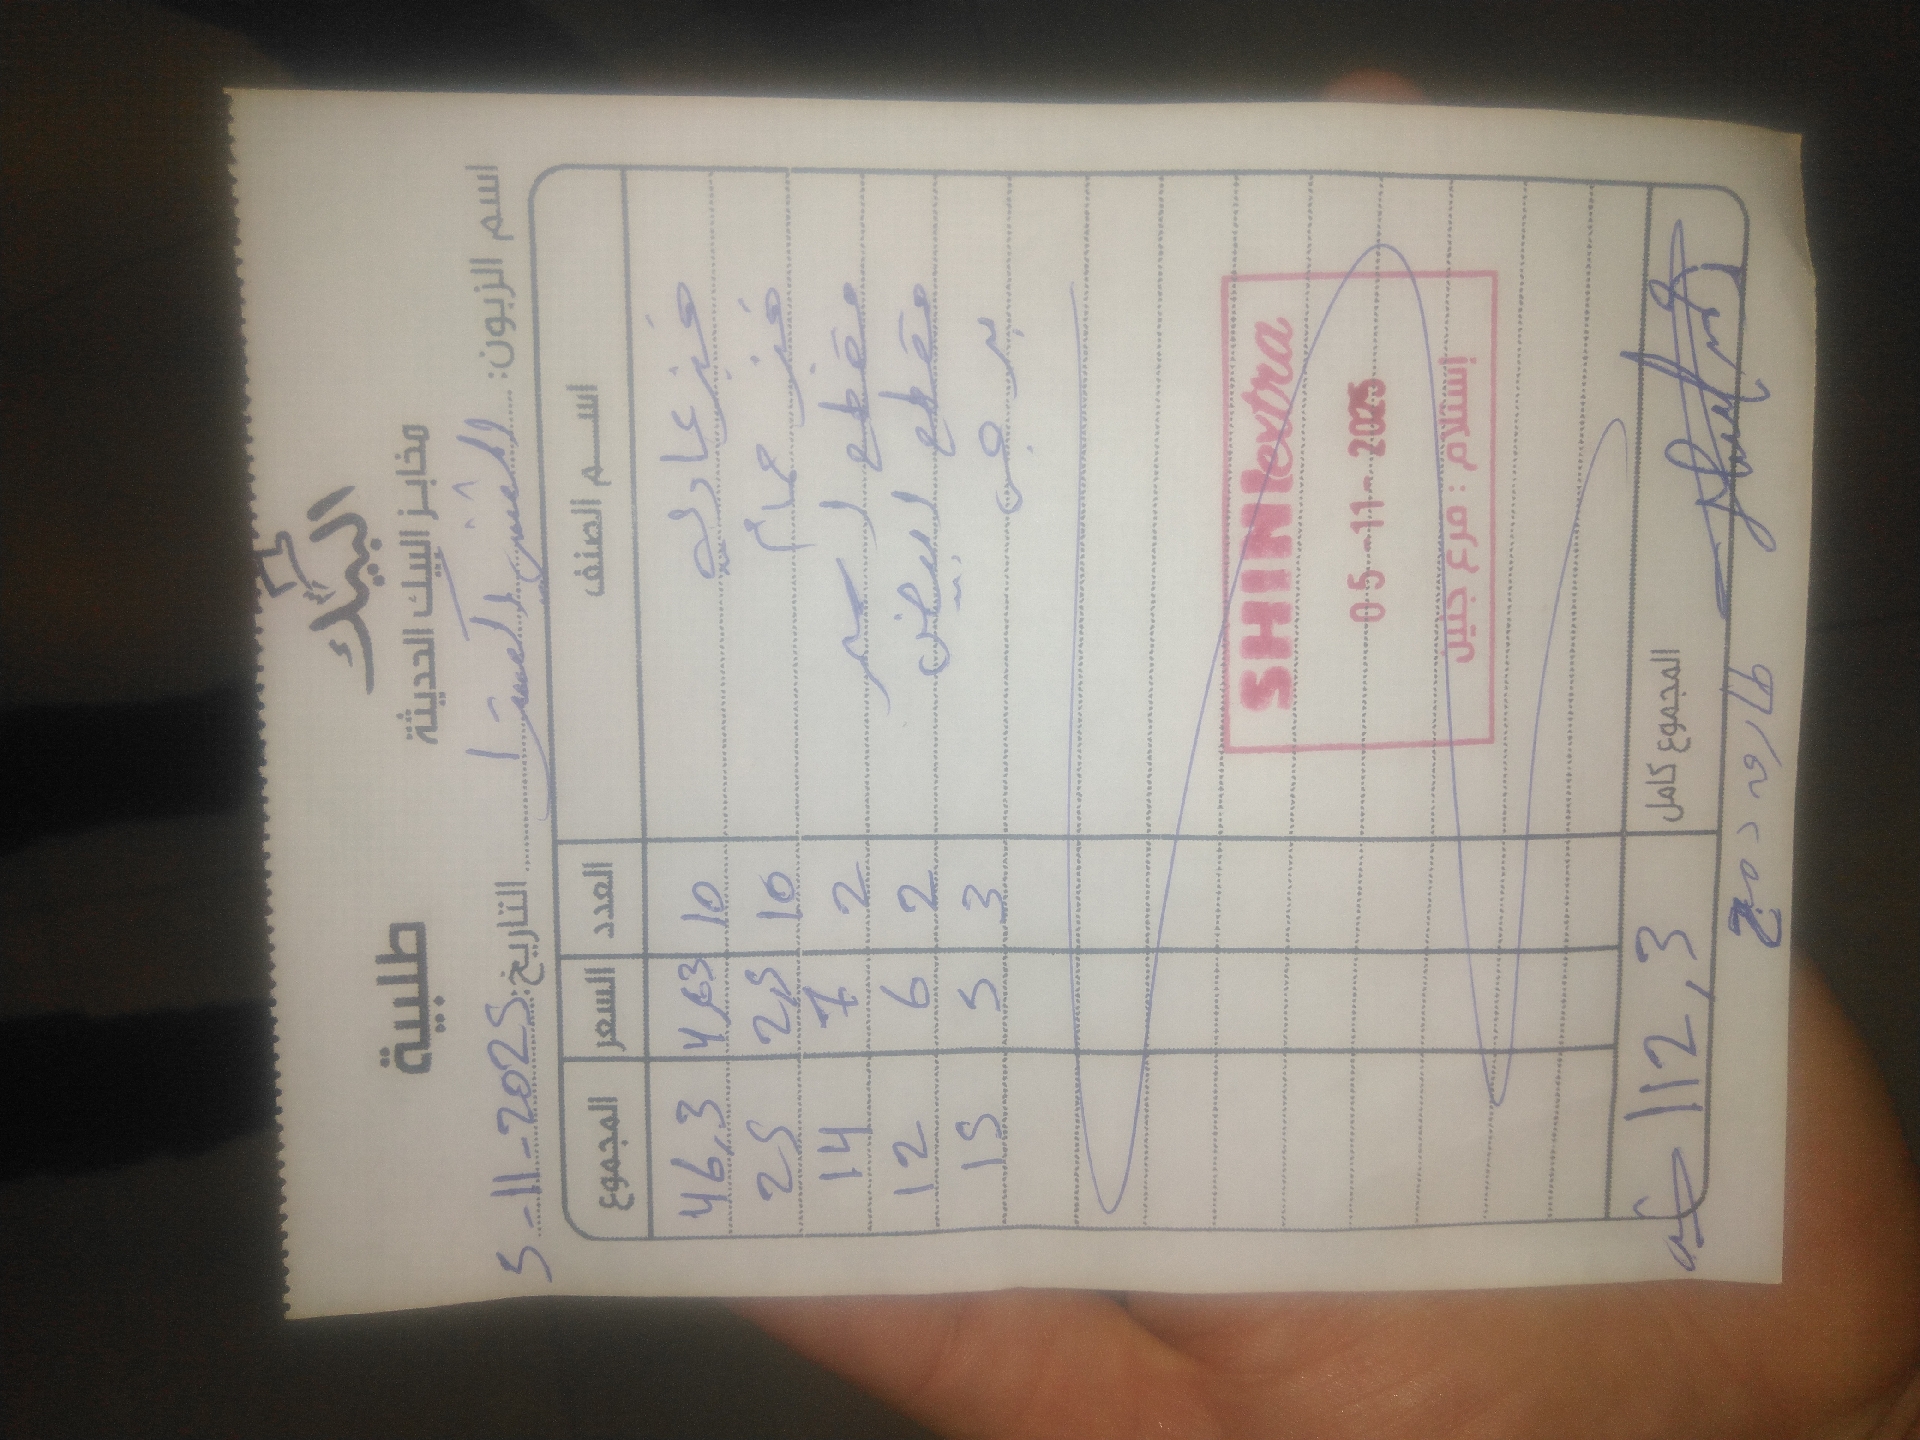 البيك
مخابز البيك الحديثة
طلبية
اسم الزبون: التاريخ: 5-11-2025
اسم الصنف العدد السعر المجموع
خبز عادي 10 4,63 46,3
خبز حمام 10 2,5 25
مقطع اسمر 2 7 14
مقطع ابيض 2 6 12
برجر 3 5 15
SHINI extra
05-11-2025
إستلام : فرع جنين
المجموع كامل 112,3